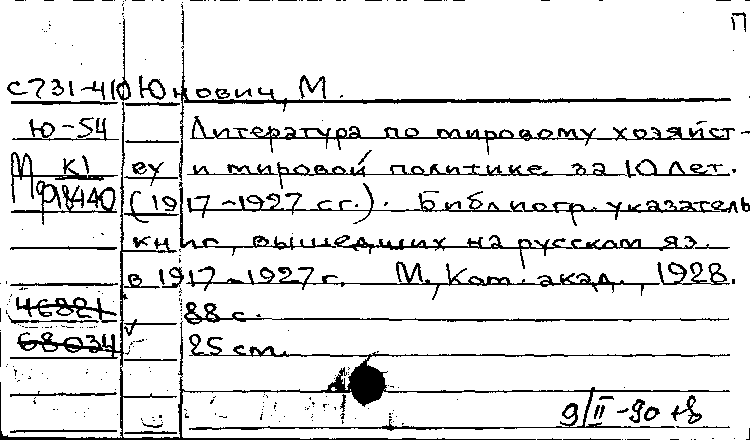 П
С731-410 Юнович, М.
Ю-54 Литература по мировому хозяйст-
К1 ву и мировой политике за 10 лет.
(1917-1927 гг.). Библиогр. указатель
книг, вышедших на русском яз.
в 1917-1927 г. М., Ком. акад., 1928.
46821 88 с.
68034 25 см.
9/II-90